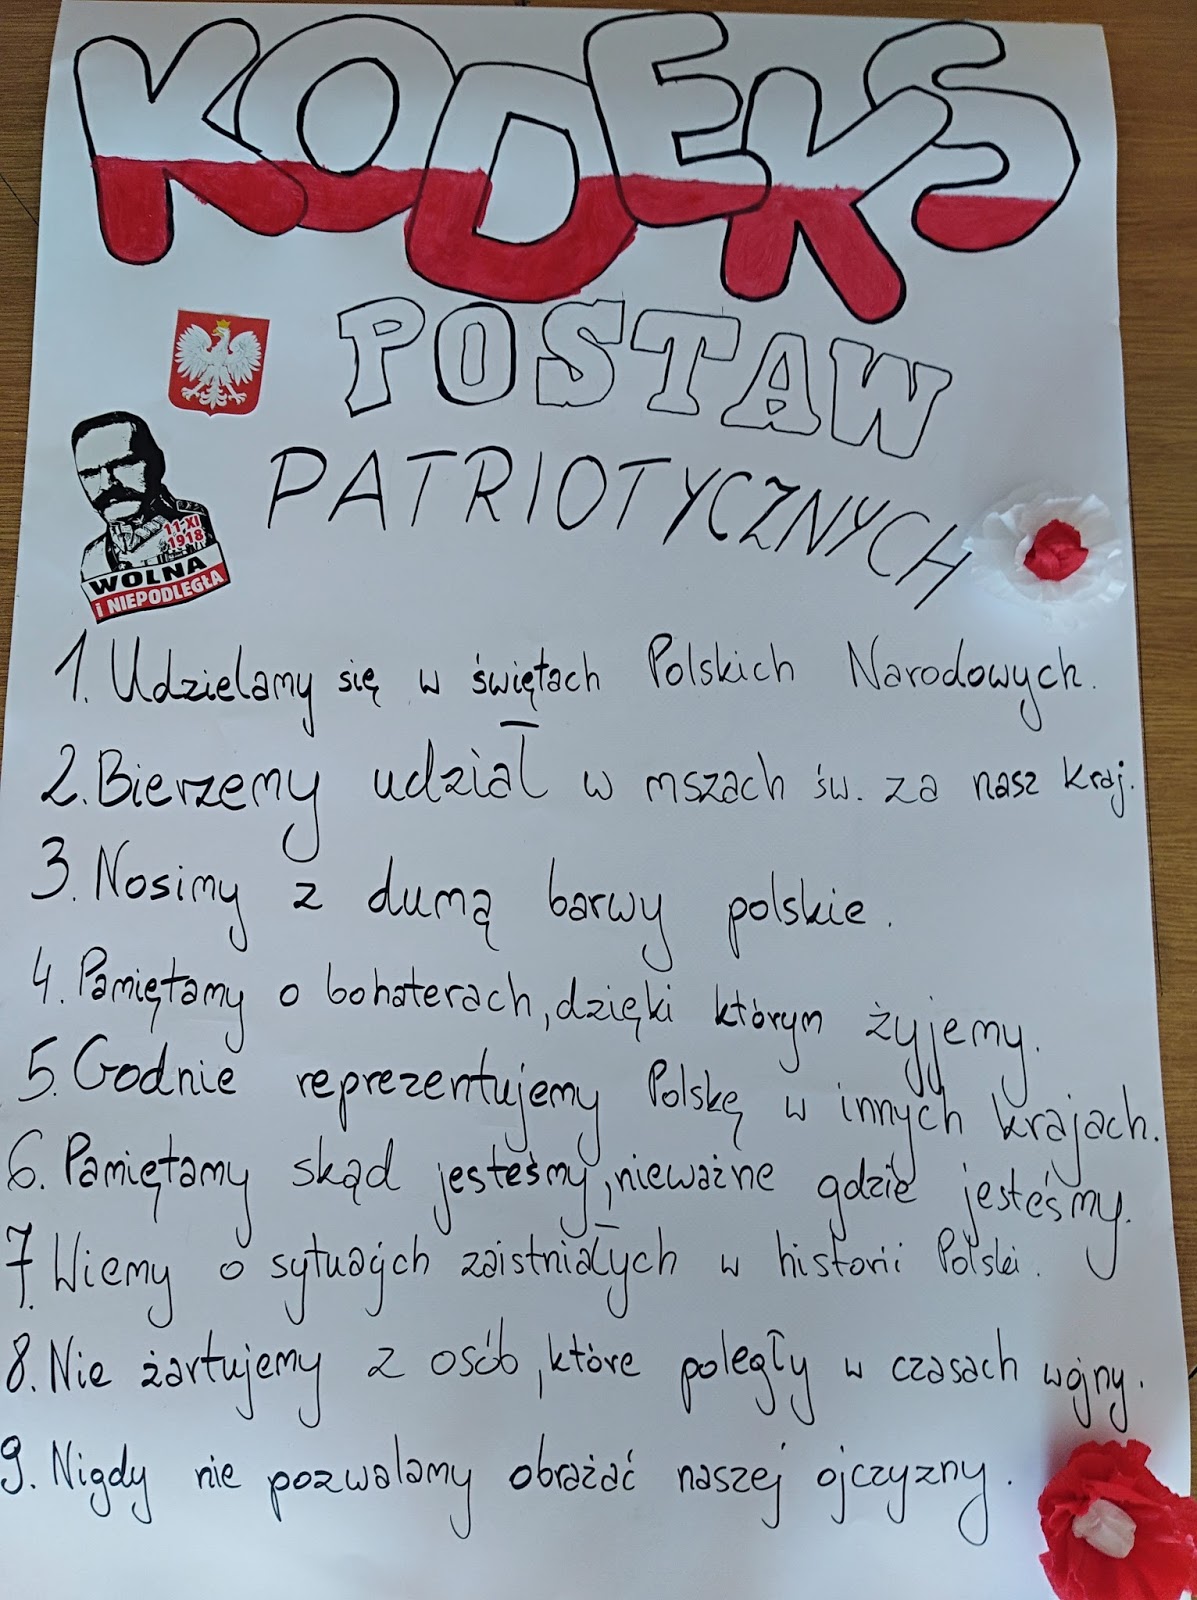 KODEKS
POSTAW
PATRIOTYCZNYCH
11 XI
1918
WOLNA
i NIEPODLEGŁA
1. Udzielamy się w świętach Polskich Narodowych.
2. Bierzemy udział w mszach św. za nasz kraj.
3. Nosimy z dumą barwy polskie.
4. Pamiętamy o bohaterach, dzięki którym żyjemy.
5. Godnie reprezentujemy Polskę w innych krajach.
6. Pamiętamy skąd jesteśmy, nieważne gdzie jesteśmy.
7. Wiemy o sytuacjch zaistniałych w historii Polski.
8. Nie żartujemy z osób, które poległy w czasach wojny.
9. Nigdy nie pozwalamy obrażać naszej ojczyzny.